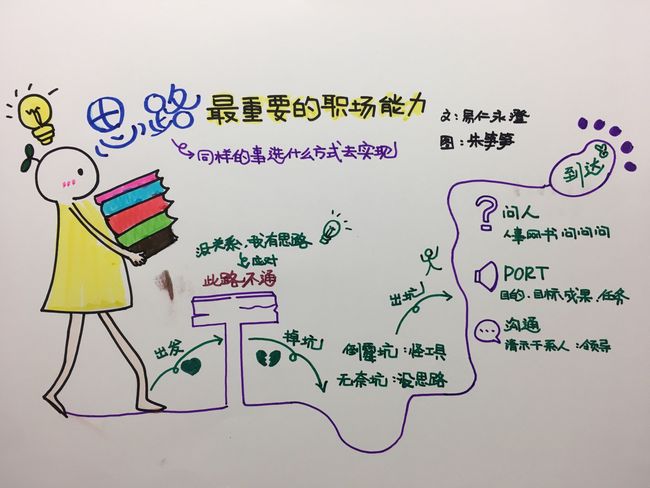 思路 最重要的职场能力
文：易仁永澄
图：朱笋笋
同样的事选什么方式去实现
到达
问人
人事网书 问问问
没关系，我有思路
应对
此路不通
PORT
目的、目标、成果、任务
出发
掉坑
出坑
沟通
请示干系人：领导
倒霉坑：怪工具
无奈坑：没思路